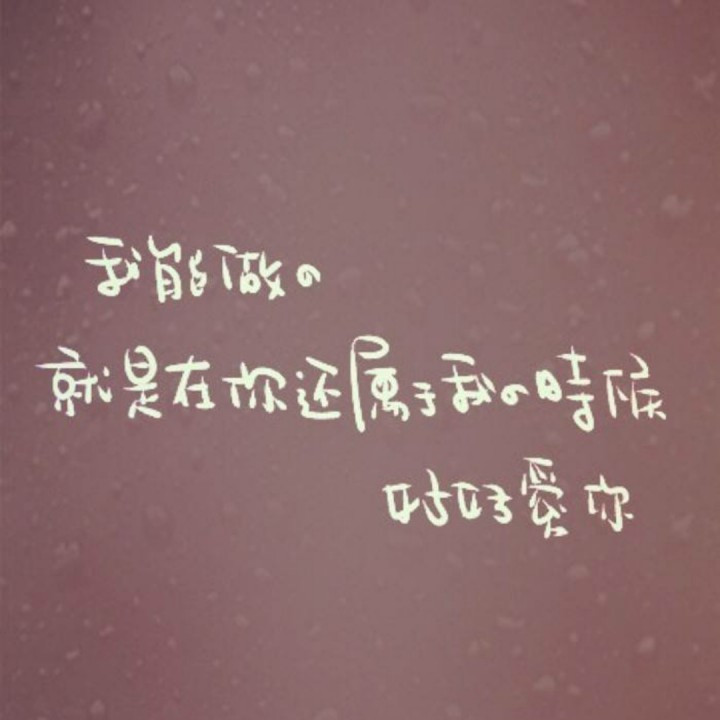 我能做の
就是在你还属于我の時候
好好爱你